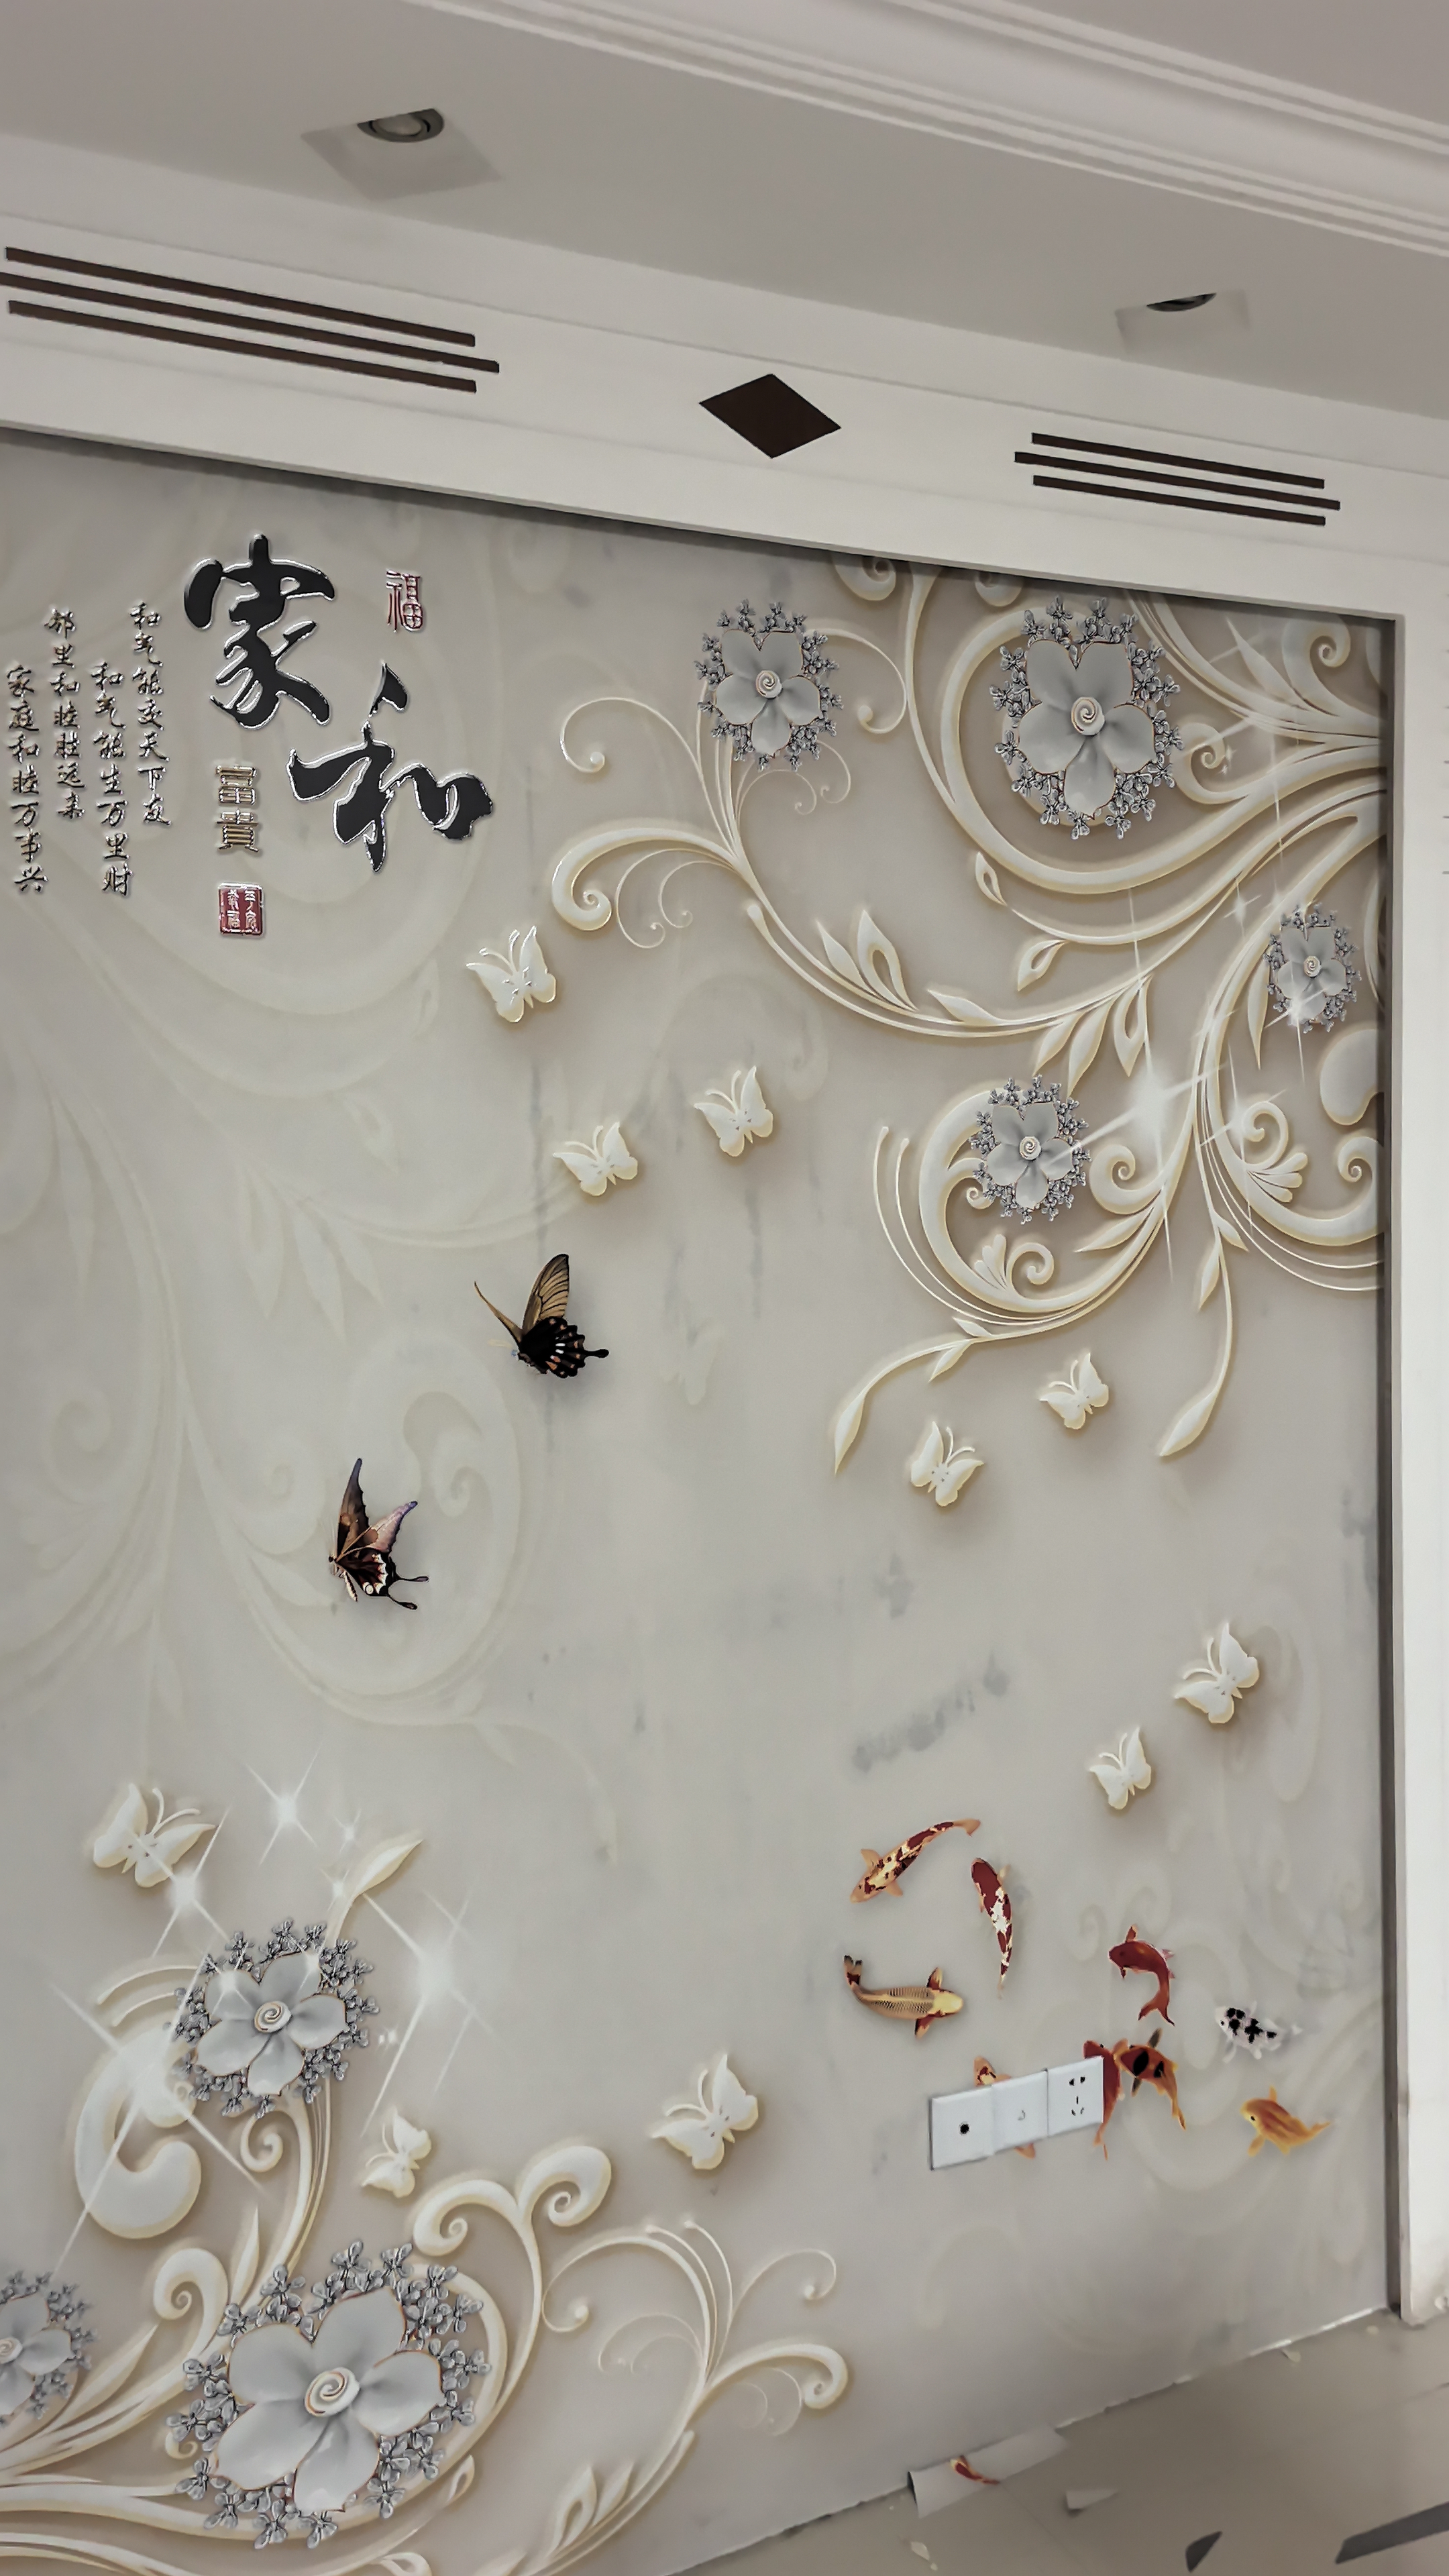 福
家和
富貴
和气能交天下友
和气能生万里财
邻里和睦胜远来
家庭和睦万事兴